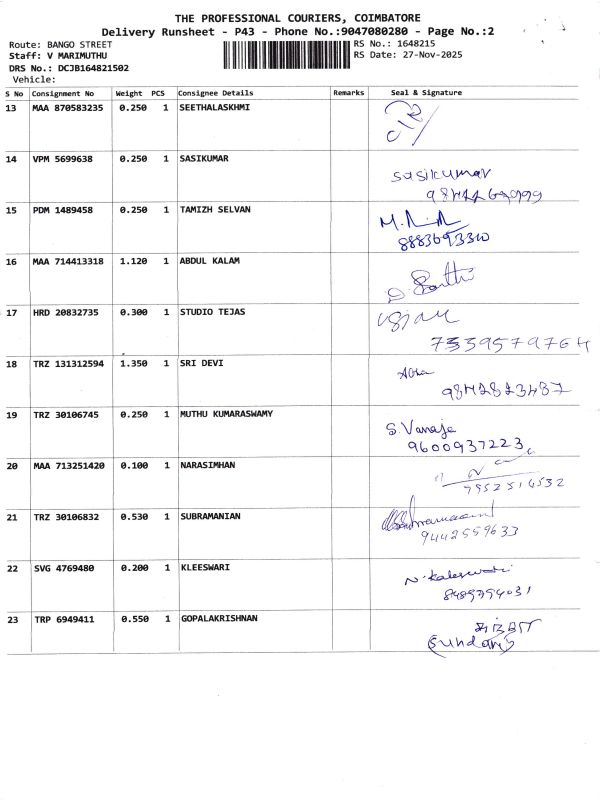 THE PROFESSIONAL COURIERS, COIMBATORE
Delivery Runsheet - P43 - Phone No.:9047080280 - Page No.:2
Route: BANGO STREET RS No.: 1648215
Staff: V MARIMUTHU RS Date: 27-Nov-2025
DRS No.: DCJB164821502
Vehicle:
S No Consignment No Weight PCS Consignee Details Remarks Seal & Signature
13 MAA 870583235 0.250 1 SEETHALASKHMI
14 VPM 5699638 0.250 1 SASIKUMAR
sasikumar
15 PDM 1489458 0.250 1 TAMIZH SELVAN
8883693310
16 MAA 714413318 1.120 1 ABDUL KALAM
17 HRD 20832735 0.300 1 STUDIO TEJAS
7339579764
18 TRZ 131312594 1.350 1 SRI DEVI
9842823487
19 TRZ 30106745 0.250 1 MUTHU KUMARASWAMY
S. Vanaja
9600937223
20 MAA 713251420 0.100 1 NARASIMHAN
7952516532
21 TRZ 30106832 0.530 1 SUBRAMANIAN
9442559633
22 SVG 4769480 0.200 1 KLEESWARI
N. Kaleswari
8489794031
23 TRP 6949411 0.550 1 GOPALAKRISHNAN